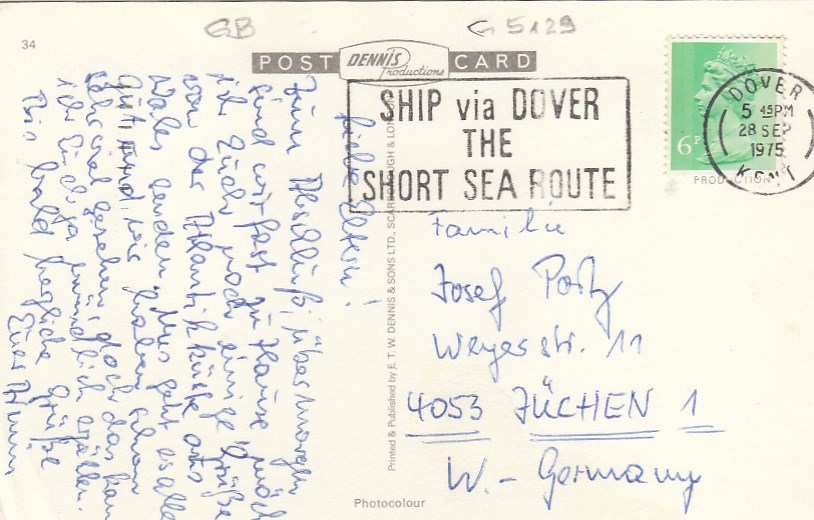 GB
G 5129
34
POST DENNIS Productions CARD
SHIP via DOVER
THE
SHORT SEA ROUTE
DOVER
5 45PM
28 SEP
1975
KENT
6P
Liebe Eltern!
Zum Abschluß, übermorgen
sind wir fast zu Hause, möcht
ich Euch noch einige Grüße
von der Atlantikküste aus
Wales senden. Uns geht es allen
gut und wir haben schon
sehr viel gesehen, doch das kann
ich Euch ja mündlich erzählen.
Bis bald herzliche Grüße
Euer Armin
Printed & Published by E. T. W. DENNIS & SONS LTD., SCARBOROUGH & LON
Familie
Josef
Weyerstr. 11
4053 JÜCHEN 1
W.-Germany
Photocolour